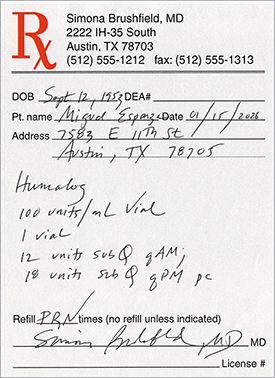 Rx
Simona Brushfield, MD
2222 IH-35 South
Austin, TX 78703
(512) 555-1212 fax: (512) 555-1313
DOB Sept 12, 1953 DEA#
Pt. name Miguel Esponza Date 01/15/2026
Address 7583 E 11th St
Austin, TX 78705
Humalog
100 units/mL Vial
1 vial
12 units sub Q qAM;
18 units sub Q qPM pc
Refill PRN times (no refill unless indicated)
Simona Brushfield, MD MD
License #